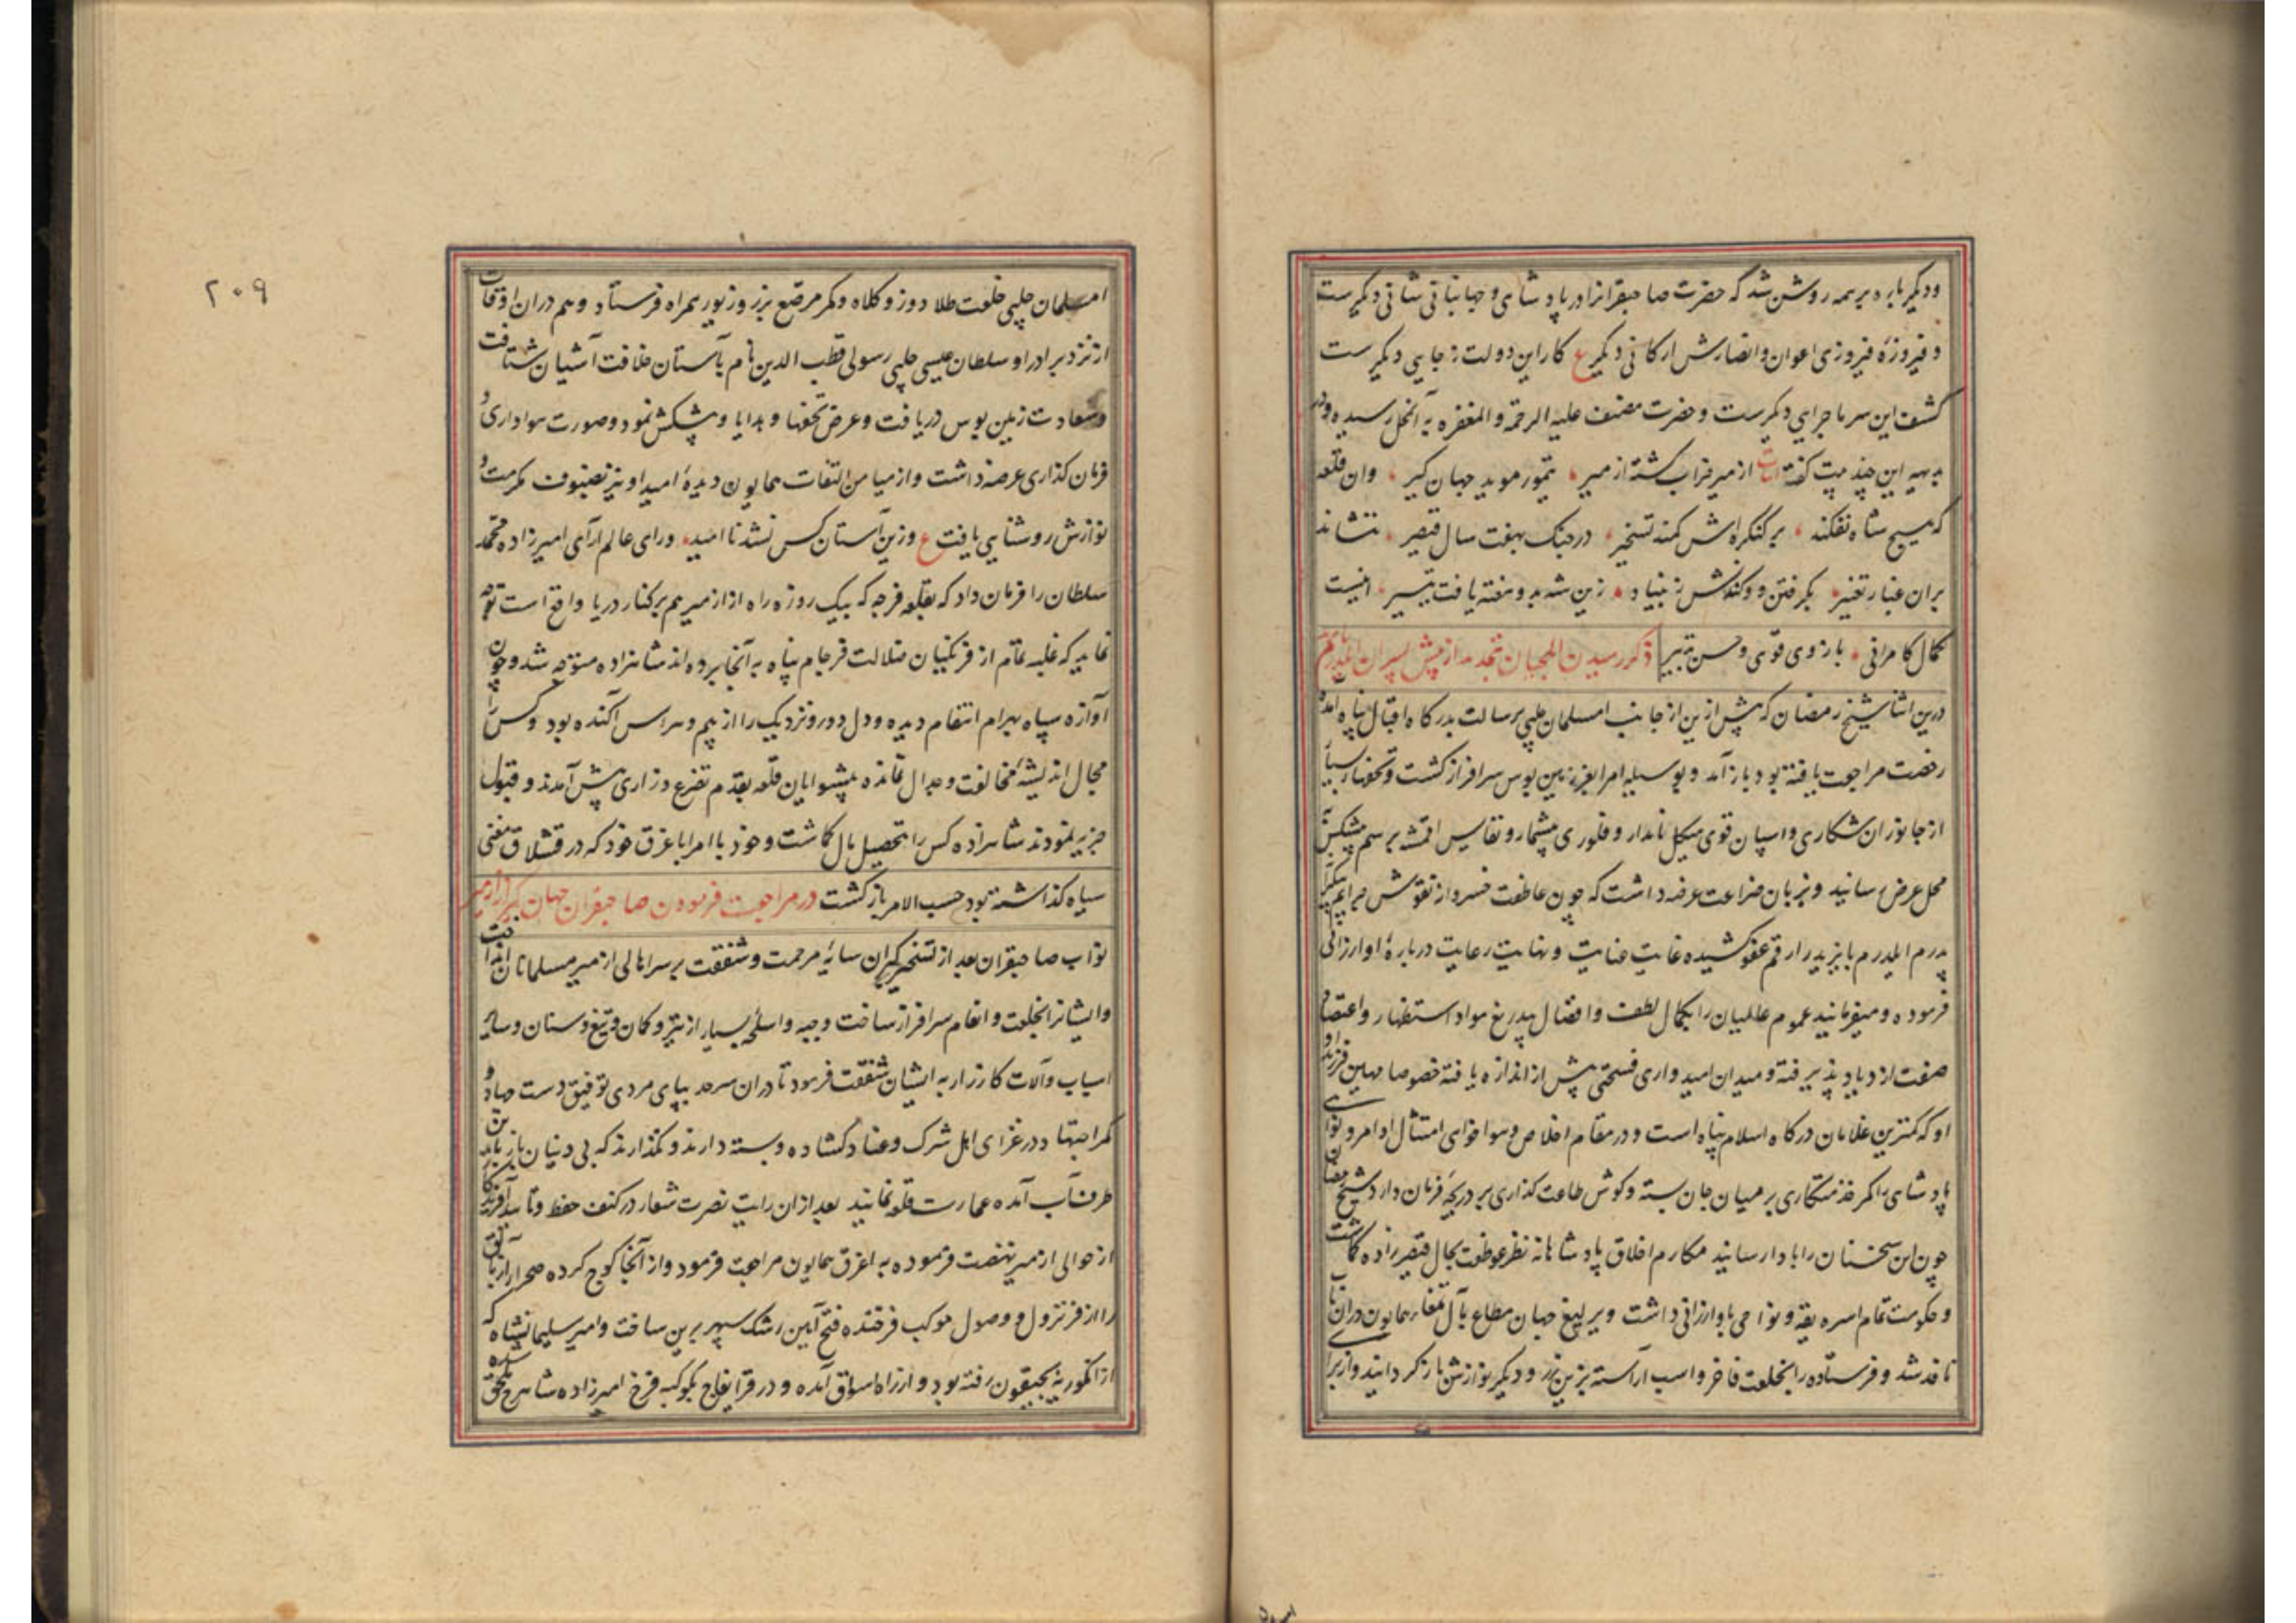 ودیگر باره بر همه روشن شد که حضرت صاحبقرانرا در پادشاهی و جهانبانی شانی دیگرست
و فیروزهٔ فیروزی اعوان و انصارش ارکانی دیگر ع کار این دولت ز جایی دیگرست
کشف این سر ماجرای دیگرست و حضرت مصنف علیه الرحمة و المغفره به آنمحل رسیده ودر
بدیهه این چند بیت گفته ابیات ازمیر خراب گشته از میر، تیمور موید جهان گیر، وان قلعه
که هیچ شاه نفکند، بر کنگره‌اش کمند تسخیر، در جنک بهفت سال قیصر، ننشاند
بران غبار تغییر، بگرفتن و کندنش ز بنیاد، زین شه بدو هفته یافت تیسیر، اینست
کمال کامرانی، بازوی قوی و حسن تدبیر ذکر رسیدن ایلچیان بتجدید از پیش پسران ایلدرم بایزید
درین اثنا شیخ رمضان که پیش ازین از جانب امسلمان چلپی برسالت بدرکاه اقبال پناه آمده و
رخصت مراجعت یافته بود باز آمد و بوسیلهٔ امرا بعز زمین بوس سرافراز گشت و تحفهای بسیار
از جانوران شکاری و اسپان قوی هیکل نامدار و فلوری بیشمار و نفایس اقمشه برسم پیشکش
بمحل عرض رسانید و بزبان ضراعت عرضه داشت که چون عاطفت خسروانه نقوش جرایم
پدرم ایلدرم بایزید را رقم عفو کشیده غایت عنایت و نهایت رعایت دربارهٔ او ارزانی
فرموده و میفرمانید عموم عالمیان را بکمال لطف و افضال بیدریغ مواد استظهار و اعتضاد
صفت ازدیاد پذیرفته و میدان امیدواری فسحتی بیش از اندازه یافته خصوصا مهین فرزند او
او که کمترین غلامان درکاه اسلام پناه است و در مقام اخلاص و هواخواهی امتثال اوامر و نواهی
پادشاهی را کمر خدمتکاری بر میان جان بسته و کوش طاعت گذاری بر دریچهٔ فرمان دارد شیخ رمضان
چون این سخنان را بادا رسانید مکارم اخلاق پادشاهانه نظر عوطفت بحال قیصر زاده کماشت
و حکومت تمام اسره یقه و نواحی باو ارزانی داشت و یرلیغ جهان مطاع بآل تمغاء همایون دران باب
نافذ شد و فرستاده را بخلعت فاخر و اسب آراسته بزین زر و دیگر نوازش باز گردانید و از برای
۲۰۹
امسلمان چلپی خلعت طلا دوز و کلاه و کمر مرصع بزر و زیور همراه فرستاد و هم دران اوقات
از نزد برادر او سلطان عیسی چلپی رسولی قطب الدین نام بآستان خلافت آشیان شتافت
و سعادت زمین بوس دریافت و عرض تحفها و هدایا و پیشکش نمود و صورت هواداری و
فرمان گذاری عرضه داشت و از میامن التفات همایون دیدهٔ امید او نیز بصنوف مکرمت و
نوازش روشنایی یافت ع وزین آستان کس نشد نا امید، و رای عالم آرای امیرزاده محمد
سلطان را فرمان داد که بقلعه فرجه که بیک روزه راه از ازمیر هم بر کنار دریا واقع است توجه
نماید که غلبه تمام از فرنگیان ضلالت فرجام پناه به آنجا برده اند شاهزاده متوجه شد و چون
آوازه سپاه بهرام انتقام دیده و دل دور و نزدیک را از بیم و هراس آکنده بود و کس را
مجال اندیشهٔ مخالفت و جدال نمانده پیشوایان قلعه بقدم تضرع و زاری پیش آمدند و قبول
جزیه نمودند شاهزاده کس را بتحصیل مال کماشت و خود با امرا باغرق خود که در قشلاق مغنی
سیاه گذاشته بود حسب الامر باز گشت در مراجعت فرمودن صاحبقران جهان گیر از ازمیر
نواب صاحبقران بعد از تسخیر گبران سایهٔ مرحمت و شفقت بر سر اهالی ازمیر مسلمانان انداخت
و ایشانرا بخلعت و انعام سرافراز ساخت وجبه و اسلحه بسیار از تیر و کمان و تیغ و سنان و سایر
اسباب و آلات کارزار به ایشان شفقت فرمود تا دران سرحد بپای مردی توفیق دست جهاد و
کمر اجتهاد در غزای اهل شرک و عناد گشاده و بسته دارند و نگذارند که بی دینان باز باین
طرف آب آمده عمارت قلعه نمایند بعد ازان رایت نصرت شعار در کنف حفظ و تایید آفریدگار
از حوالی ازمیر نهضت فرموده به اغرق همایون مراجعت فرمود و از آنجا کوچ کرده صحرای
را از فر نزول و وصول موکب فرخنده فتح آیین رشک سپهر برین ساخت و امیر سلیمانشاه که
از انکوریه بحیقون رفته بود و از راه اسواق آمده و در قرا یغاج بکوکبه فرخ امیرزاده شاهرخ ملحق شده